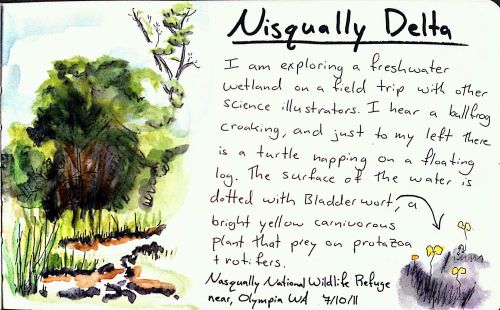 Nisqually Delta
I am exploring a freshwater
wetland on a field trip with other
science illustrators. I hear a bullfrog
croaking, and just to my left there
is a turtle napping on a floating
log. The surface of the water is
dotted with Bladderwort, a
bright yellow carnivorous
plant that prey on protazoa
+ rotifers.
Nasqually National Wildlife Refuge
near, Olympia WA 7/10/11